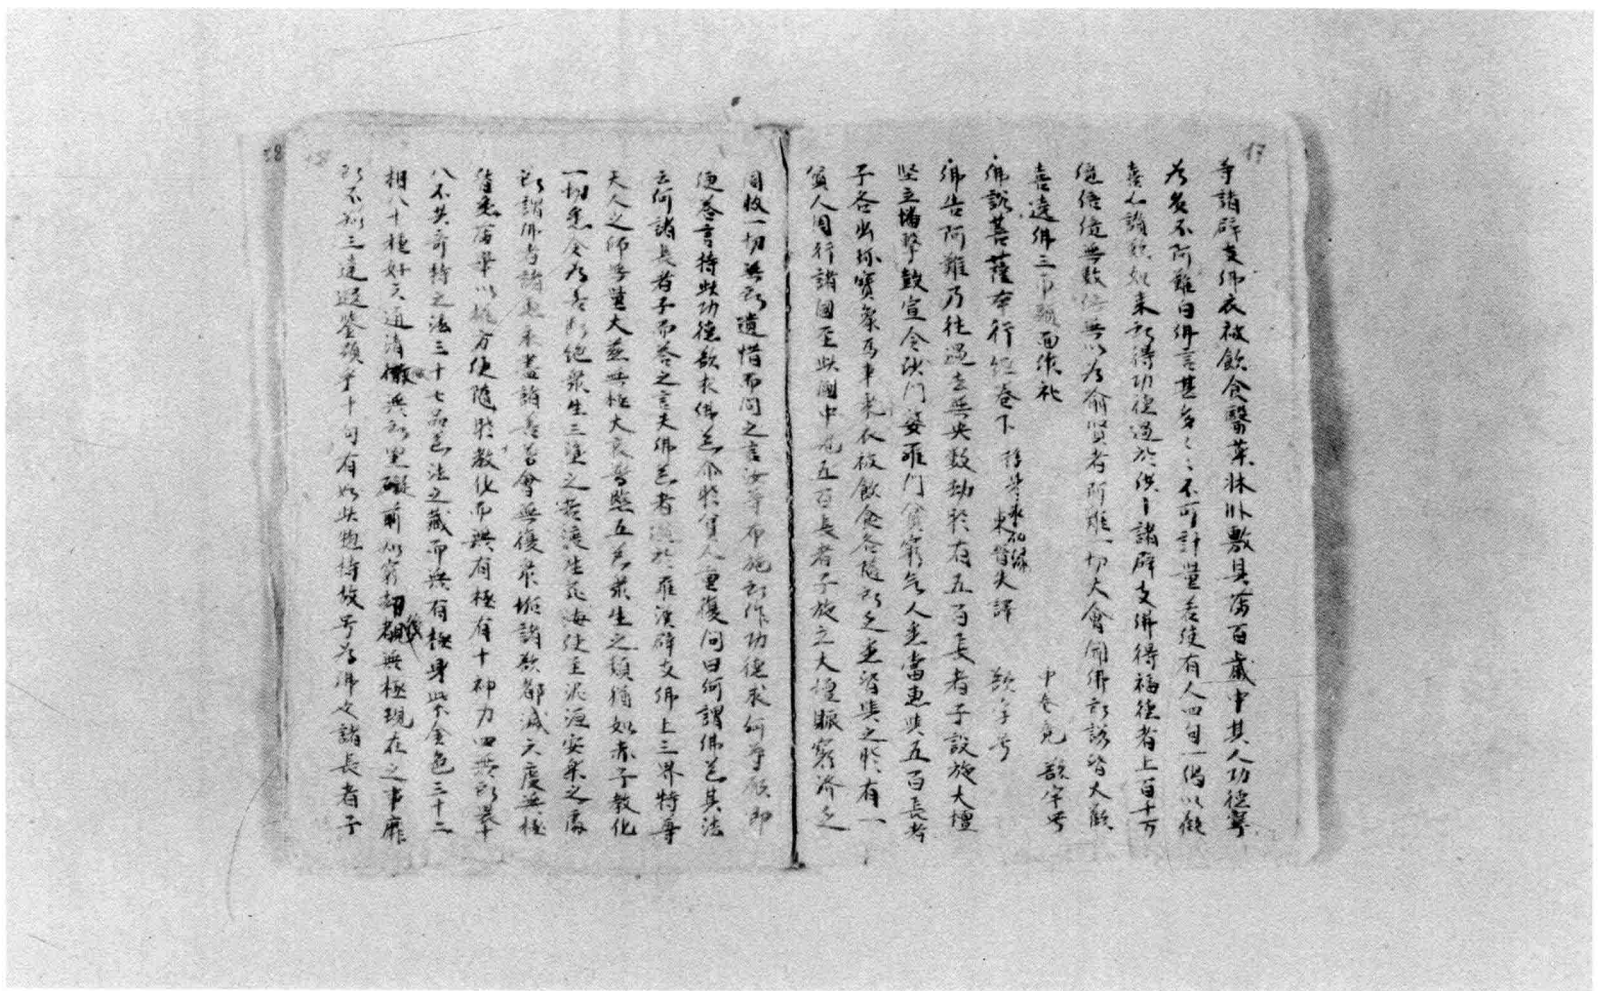 17
等諸辟支佛衣被飲食醫藥牀臥敷具滿百歲中其人功德寧
為多不阿難白佛言甚多々々不可計量若使有人四句一偈以歡
喜心讚歎如來所得功德過於供上諸辟支佛得福德者上百千万
億倍億無數倍無以為喻賢者阿難一切大會聞佛所說皆大歡
喜遶佛三帀頭面作礼
佛說菩薩本行經卷下 失譯
佛告阿難乃往過去無央數劫於有五百長者子設施大壇
竪立幡擊鼓宣令沙門婆羅門貧窮乞人悉當惠與五百長者
子各出珎寶象馬車乘衣被飲食各隨所乏悉皆與之時有一
貧人周行諸國至此國中見五百長者子施立大壇賑窮濟乏
周救一切無所遺惜而問之言汝等布施所作功德求何等願即
便荅言持此功德欲求佛道於貧人重復問曰何謂佛道其法
云何諸長者子而荅之言夫佛道者過於羅漢辟支佛上三界特尊
天人之師無量大慈無極大哀普愍五道眾生之類猶如赤子教化
一切悉令為善斷絕眾生三塗之苦度生死海使至泥洹安樂之處
所謂佛者諸惡永盡諸善普會無復眾垢諸欲都滅六度無極
皆悉滿畢以權方便隨時教化而無有極有十神力四無所畏十
八不共奇特之法三十七品道法之藏而無有極身紫金色三十二
相八十種好六通清徹無所罣礙前知無窮却覩無極現在之事靡
所不知三達遐鑒顯于十句有如此德特故号為佛也諸長者子
18